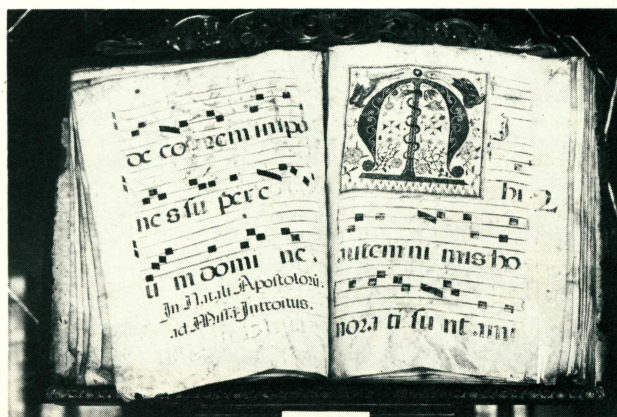 de co nem impo
nes su per e
ti m domi ne.
In Natali Apostolorũ.
ad Missã Introitus.
M
hi
autem ni mis ho
nora ti su nt ami